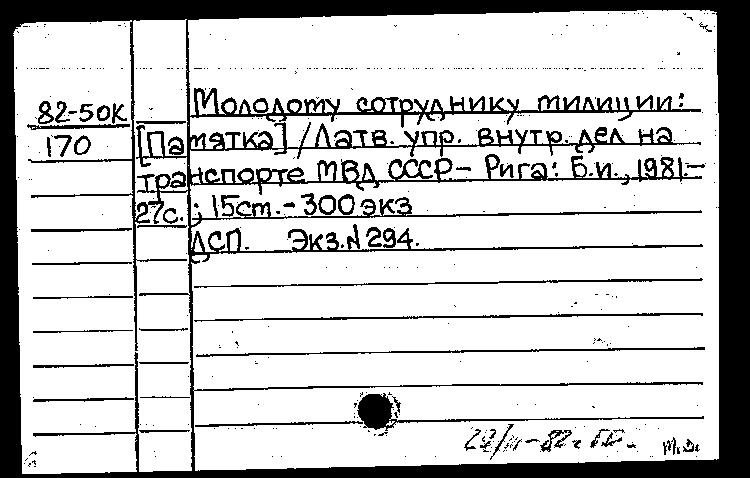 82-50К
170
Молодому сотруднику милиции:
[Памятка] / Латв. упр. внутр. дел на
транспорте МВД СССР.- Рига: Б.и., 1981.-
27с.; 15см. - 300 экз
ДСП. Экз.№ 294.